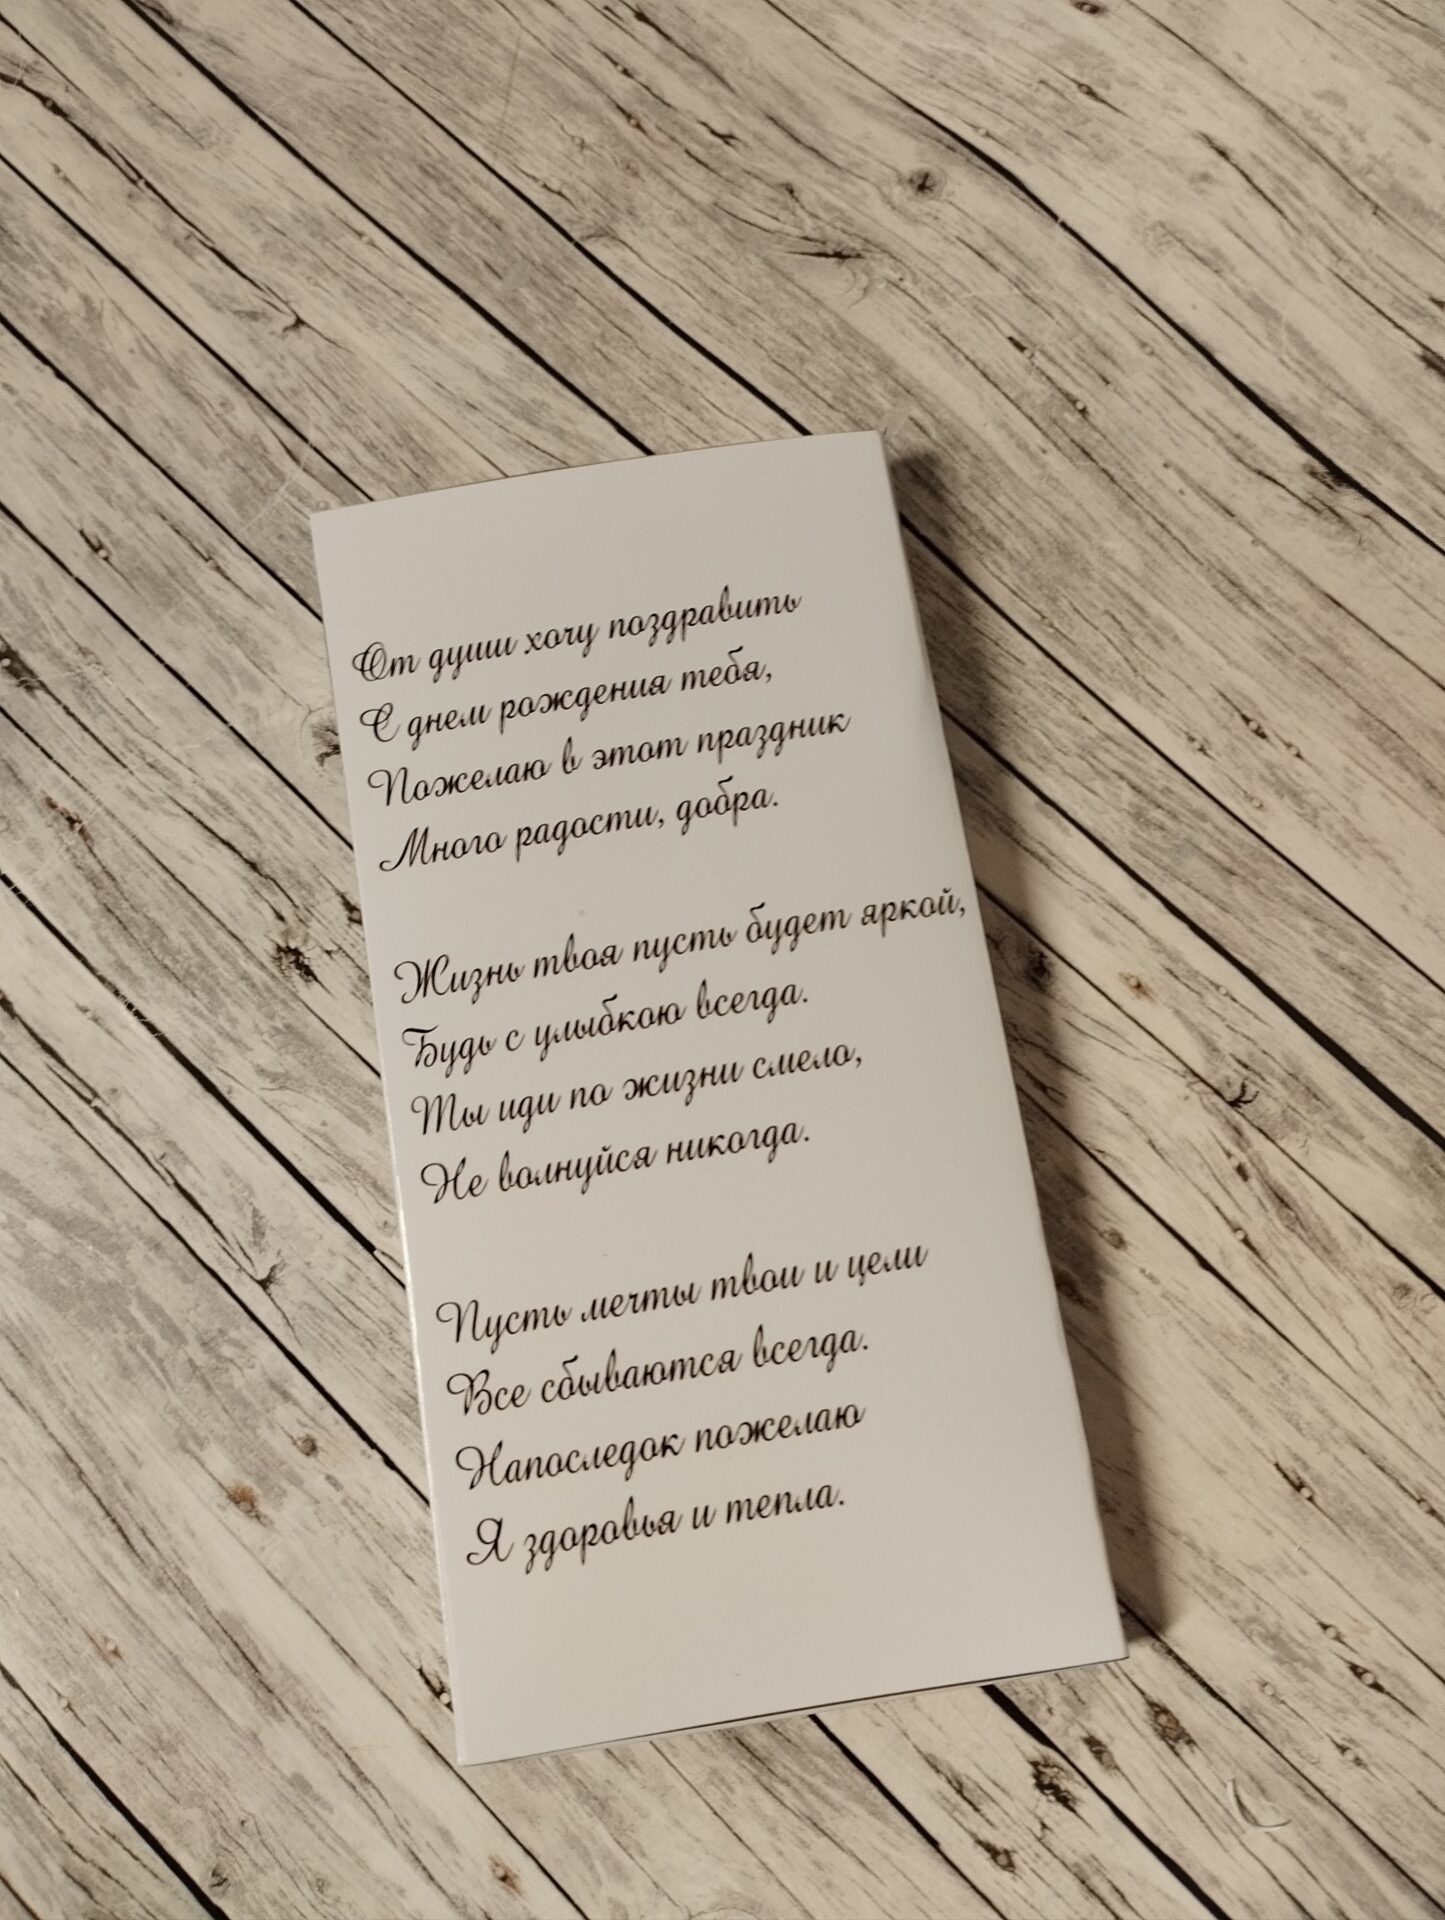 От души хочу поздравить
С днем рождения тебя,
Пожелаю в этот праздник
Много радости, добра.
Жизнь твоя пусть будет яркой,
Будь с улыбкою всегда.
Ты иди по жизни смело,
Не волнуйся никогда.
Пусть мечты твои и цели
Все сбываются всегда.
Напоследок пожелаю
Я здоровья и тепла.